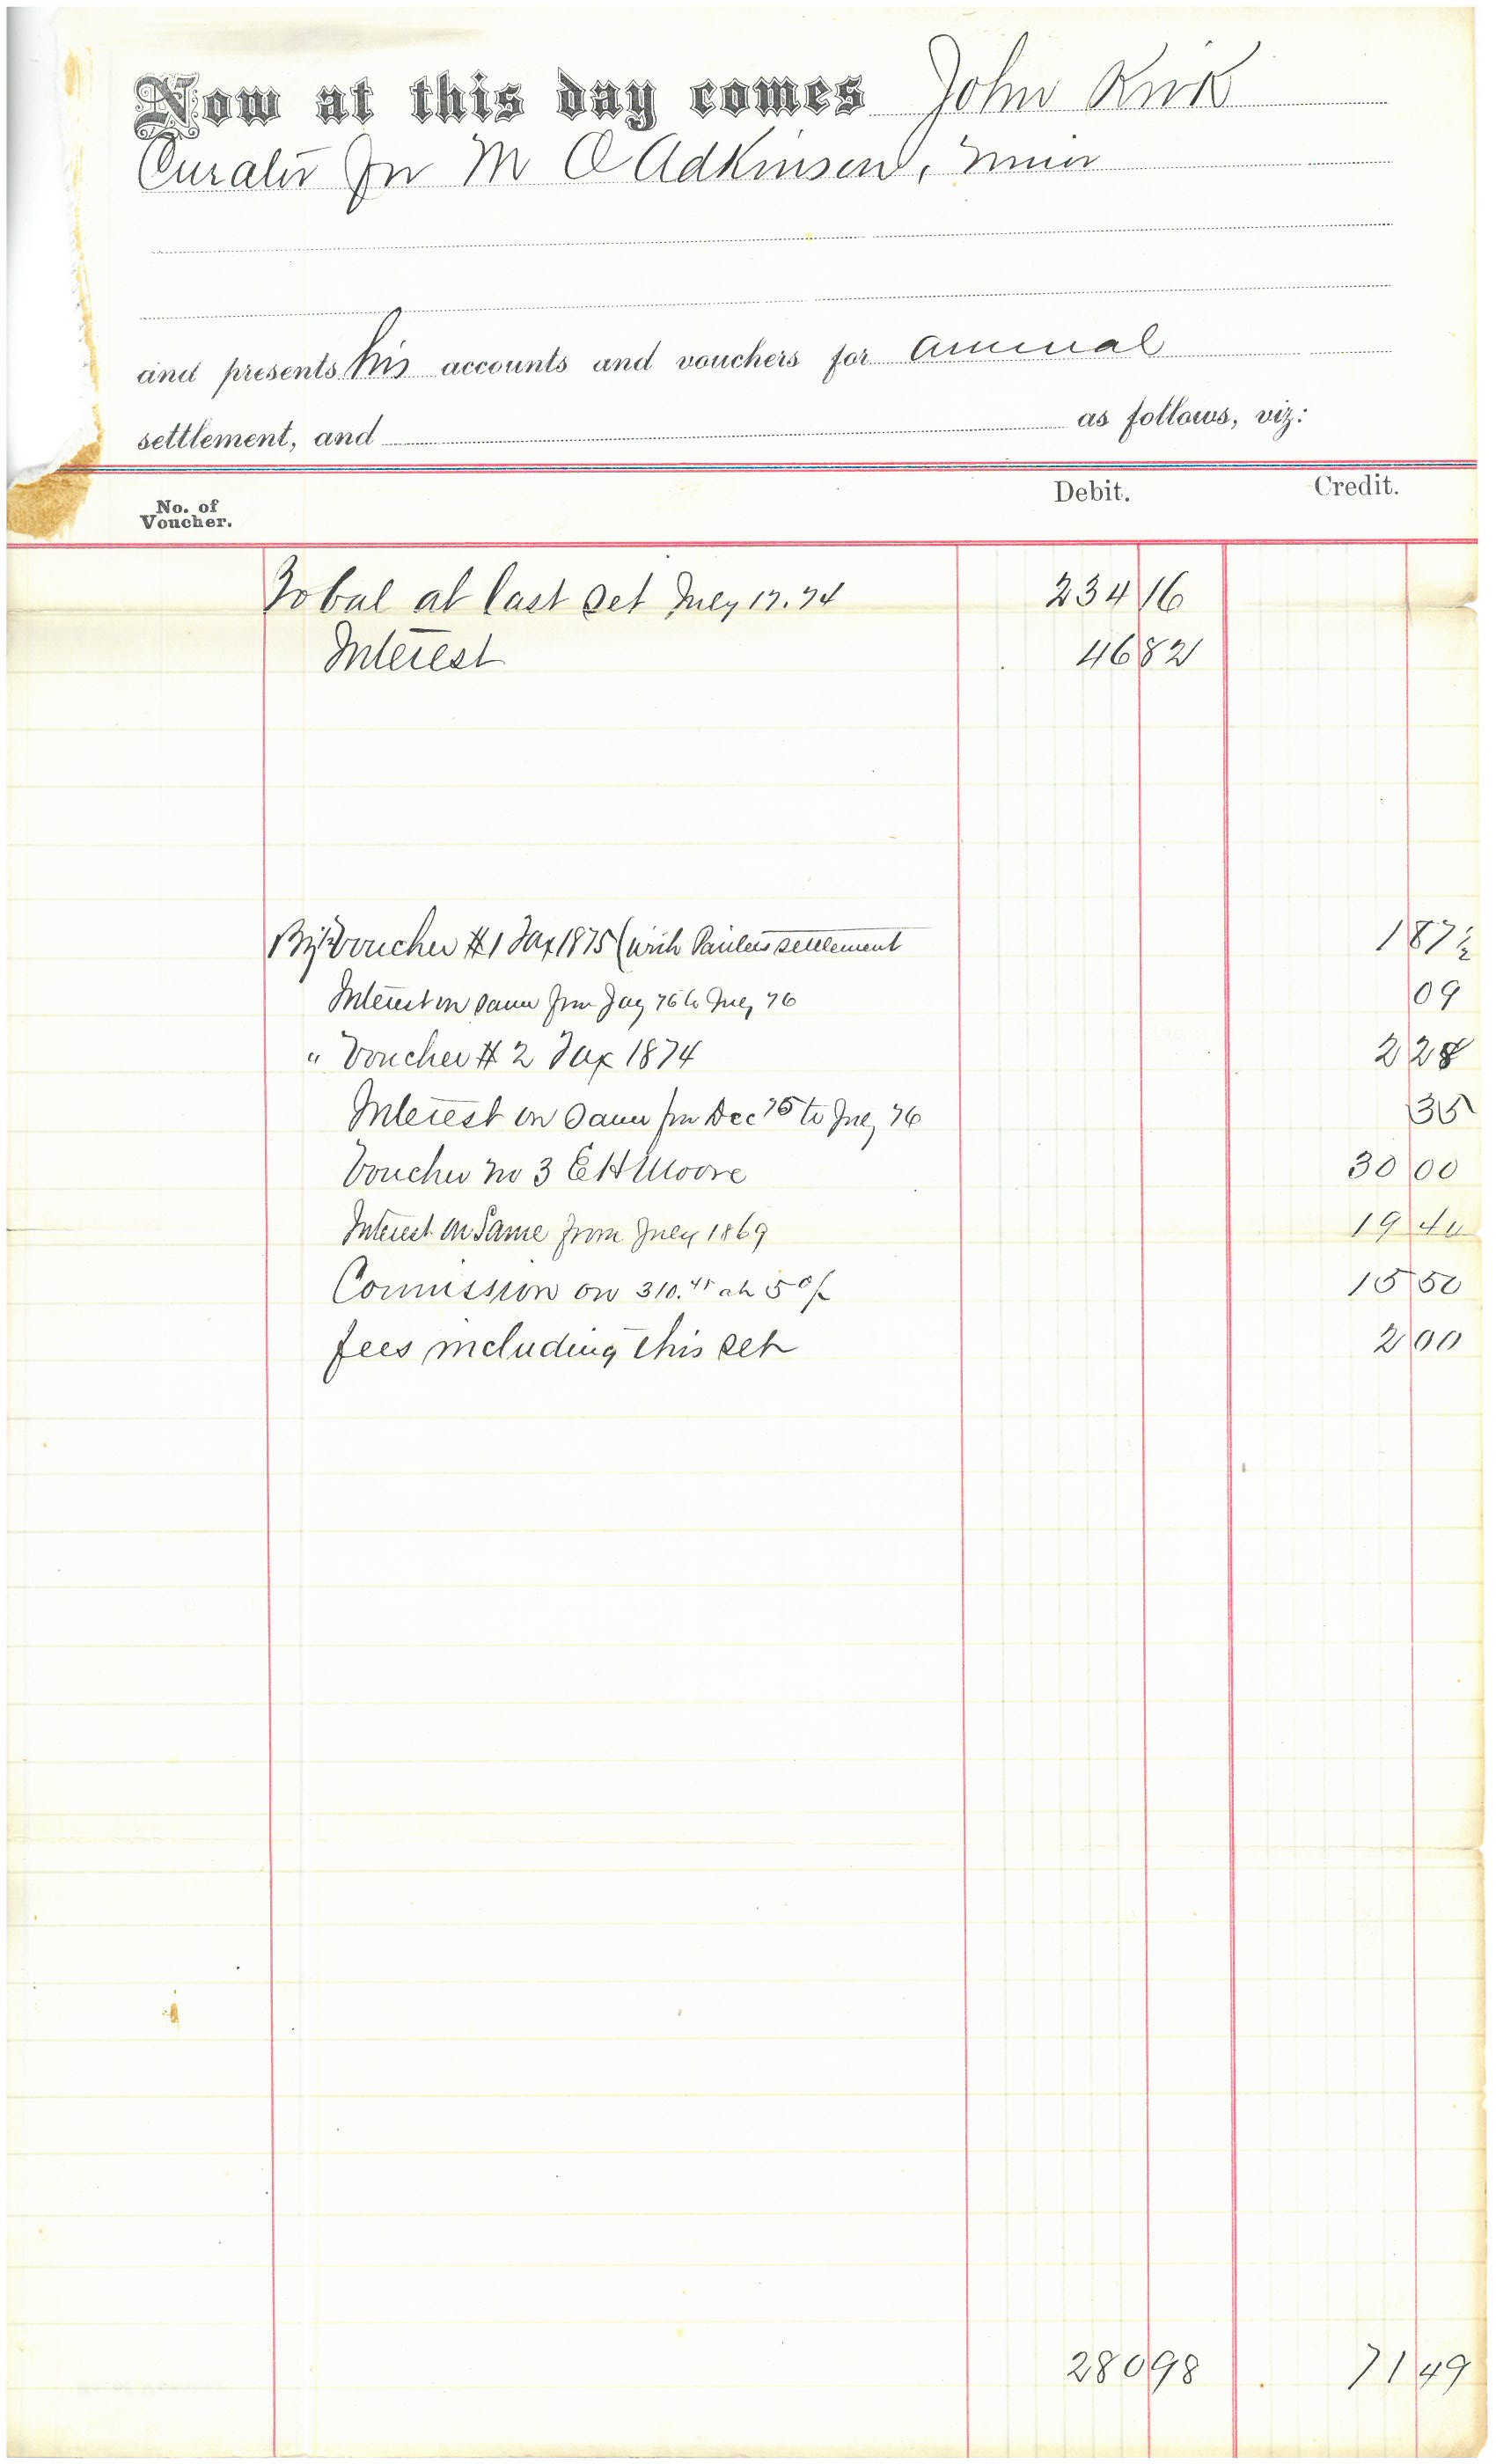 Now at this day comes John Kirk
Curator for M O Adkinson, minor
and presents his accounts and vouchers for Annual
settlement, and as follows, viz:
No. of Voucher. Debit. Credit.
To bal at last set July 17. 74 234 16
Interest 46 82
By Voucher #1 Tax 1875 (with settlement 1 87 1/2
Interest on same from 76 to July 76 09
" Voucher # 2 Tax 1874 2 28
Interest on same from Dec 75 to July 76 35
Voucher no 3 E H Moore 30 00
Interest on Same from July 1869 19 40
Commission on 310.45 at 5% 15 50
fees including this set 2 00
280 98 71 49